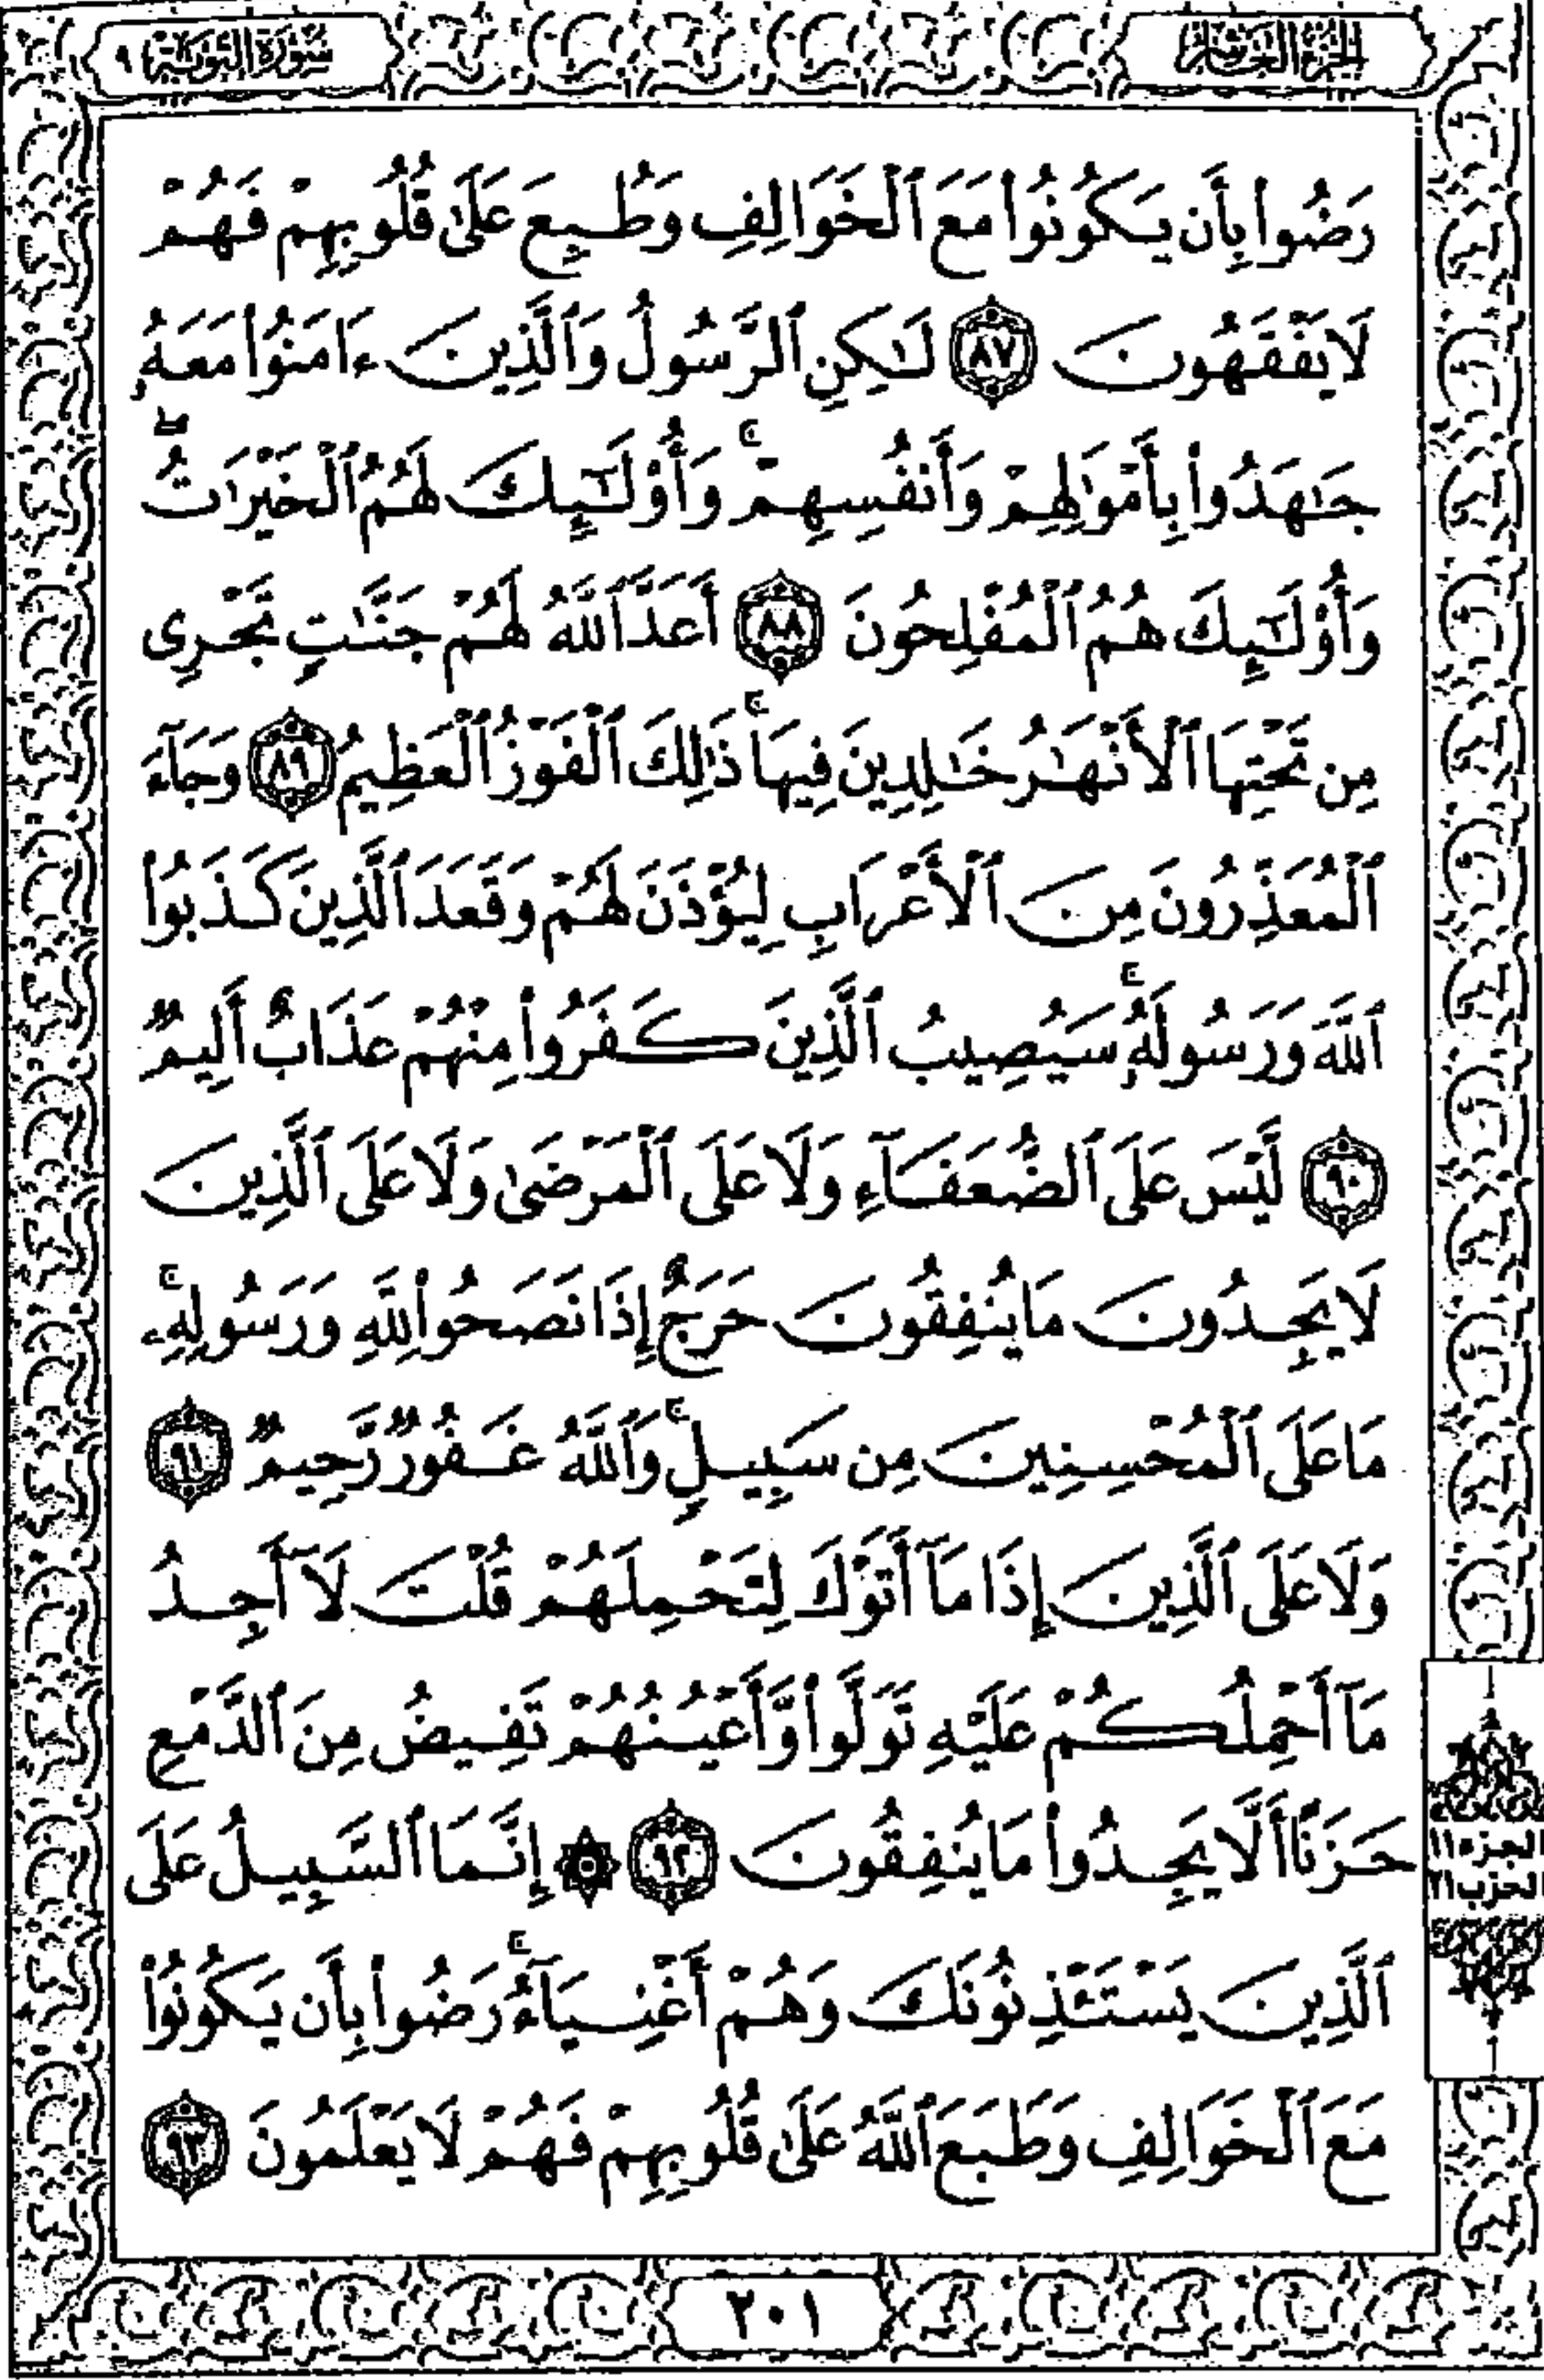 الجزء العاشر
سورة التوبة ٩
رَضُوا۟ بِأَن يَكُونُوا۟ مَعَ ٱلْخَوَالِفِ وَطُبِعَ عَلَىٰ قُلُوبِهِمْ فَهُمْ
لَا يَفْقَهُونَ ٨٧ لَـٰكِنِ ٱلرَّسُولُ وَٱلَّذِينَ ءَامَنُوا۟ مَعَهُۥ
جَـٰهَدُوا۟ بِأَمْوَٰلِهِمْ وَأَنفُسِهِمْ ۚ وَأُو۟لَـٰٓئِكَ لَهُمُ ٱلْخَيْرَٰتُ ۖ
وَأُو۟لَـٰٓئِكَ هُمُ ٱلْمُفْلِحُونَ ٨٨ أَعَدَّ ٱللَّهُ لَهُمْ جَنَّـٰتٍ تَجْرِى
مِن تَحْتِهَا ٱلْأَنْهَـٰرُ خَـٰلِدِينَ فِيهَا ۚ ذَٰلِكَ ٱلْفَوْزُ ٱلْعَظِيمُ ٨٩ وَجَآءَ
ٱلْمُعَذِّرُونَ مِنَ ٱلْأَعْرَابِ لِيُؤْذَنَ لَهُمْ وَقَعَدَ ٱلَّذِينَ كَذَبُوا۟
ٱللَّهَ وَرَسُولَهُۥ ۚ سَيُصِيبُ ٱلَّذِينَ كَفَرُوا۟ مِنْهُمْ عَذَابٌ أَلِيمٌ
٩٠ لَّيْسَ عَلَى ٱلضُّعَفَآءِ وَلَا عَلَى ٱلْمَرْضَىٰ وَلَا عَلَى ٱلَّذِينَ
لَا يَجِدُونَ مَا يُنفِقُونَ حَرَجٌ إِذَا نَصَحُوا۟ لِلَّهِ وَرَسُولِهِۦ ۚ
مَا عَلَى ٱلْمُحْسِنِينَ مِن سَبِيلٍ ۚ وَٱللَّهُ غَفُورٌ رَّحِيمٌ ٩١
وَلَا عَلَى ٱلَّذِينَ إِذَا مَآ أَتَوْكَ لِتَحْمِلَهُمْ قُلْتَ لَآ أَجِدُ
مَآ أَحْمِلُكُمْ عَلَيْهِ تَوَلَّوا۟ وَّأَعْيُنُهُمْ تَفِيضُ مِنَ ٱلدَّمْعِ
حَزَنًا أَلَّا يَجِدُوا۟ مَا يُنفِقُونَ ٩٢ ۞ إِنَّمَا ٱلسَّبِيلُ عَلَى
الجزء ١١
الحزب ٢١
ٱلَّذِينَ يَسْتَـْٔذِنُونَكَ وَهُمْ أَغْنِيَآءُ ۚ رَضُوا۟ بِأَن يَكُونُوا۟
مَعَ ٱلْخَوَالِفِ وَطَبَعَ ٱللَّهُ عَلَىٰ قُلُوبِهِمْ فَهُمْ لَا يَعْلَمُونَ ٩٣
٢٠١